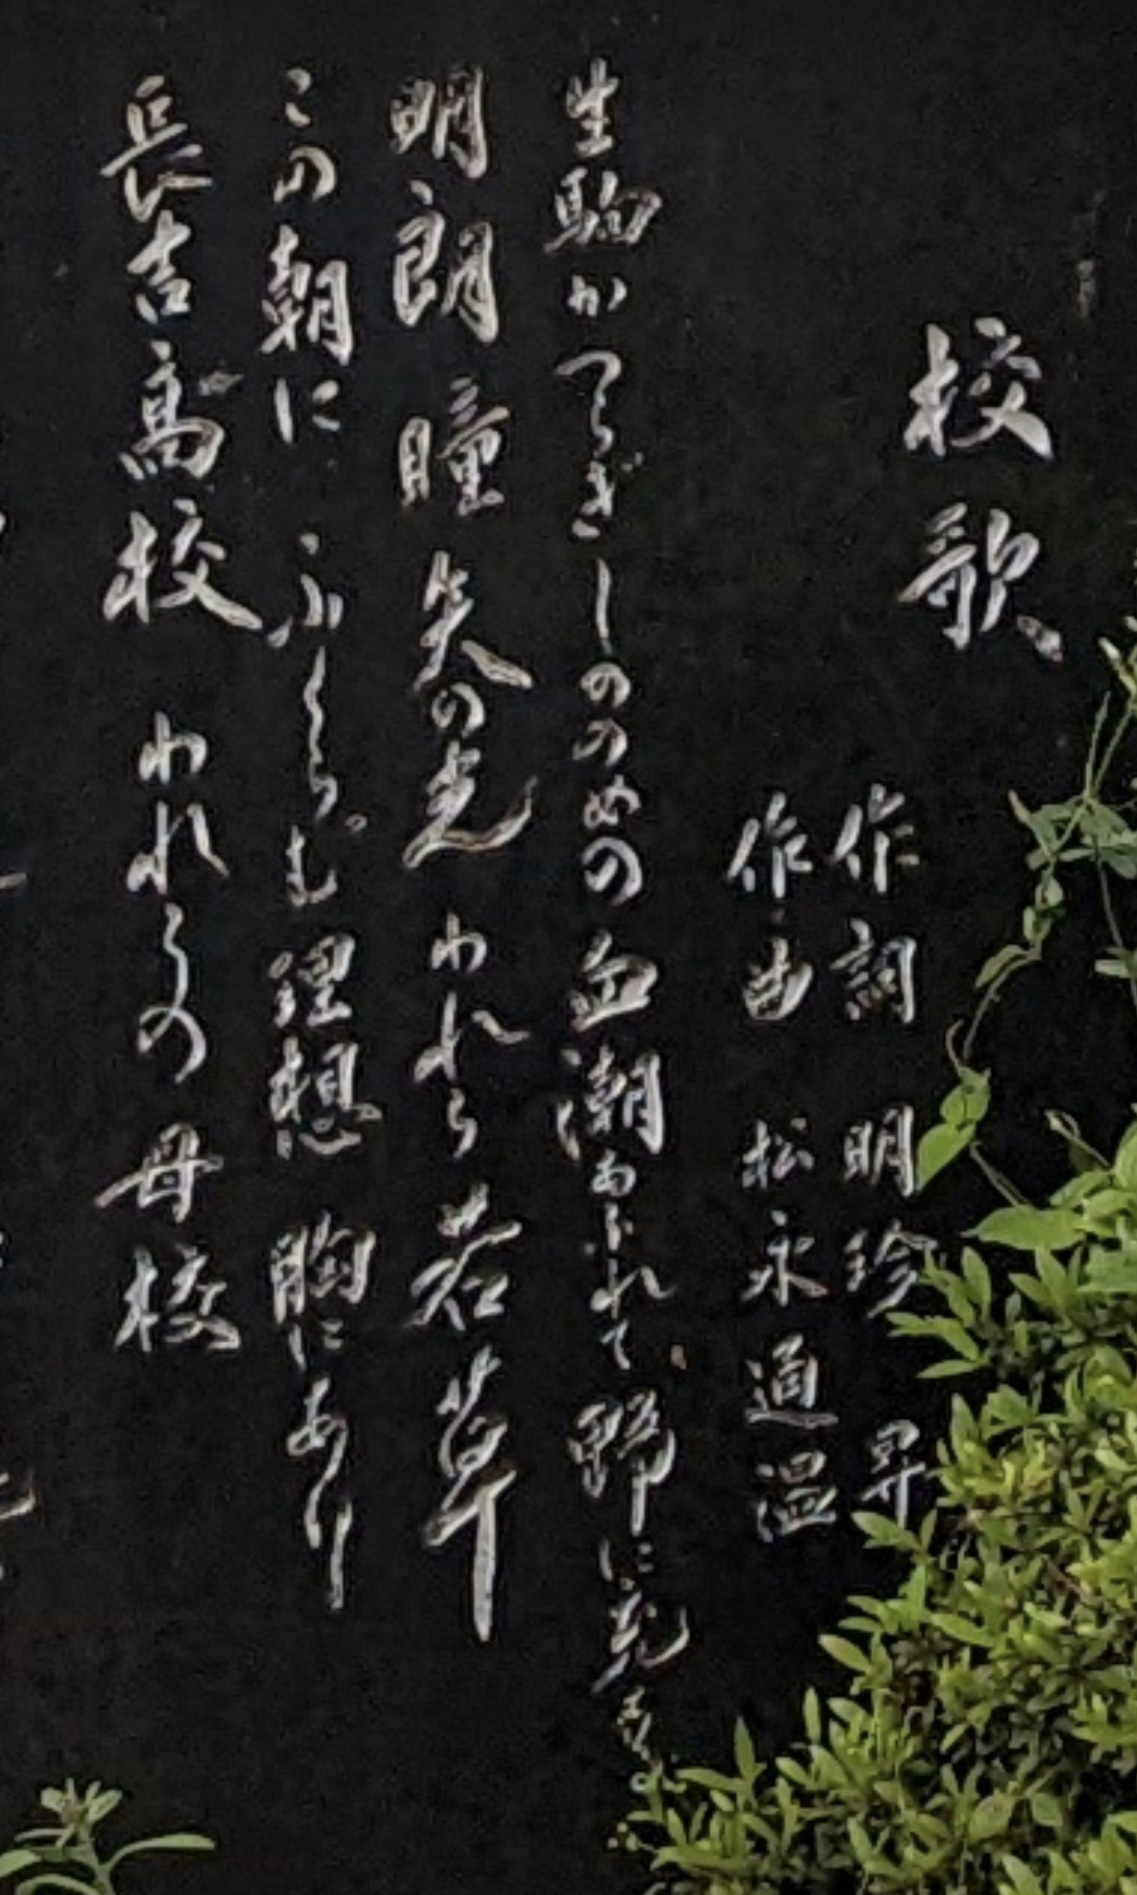 校歌
作詞 明珍 昇
作曲 松永通温
生駒かつらぎしのゝめの血潮あふれて野に充
明朗 瞳 矢の光 われら 若草
この朝に ふくらむ理想 胸にあり
長吉高校 われらの 母校